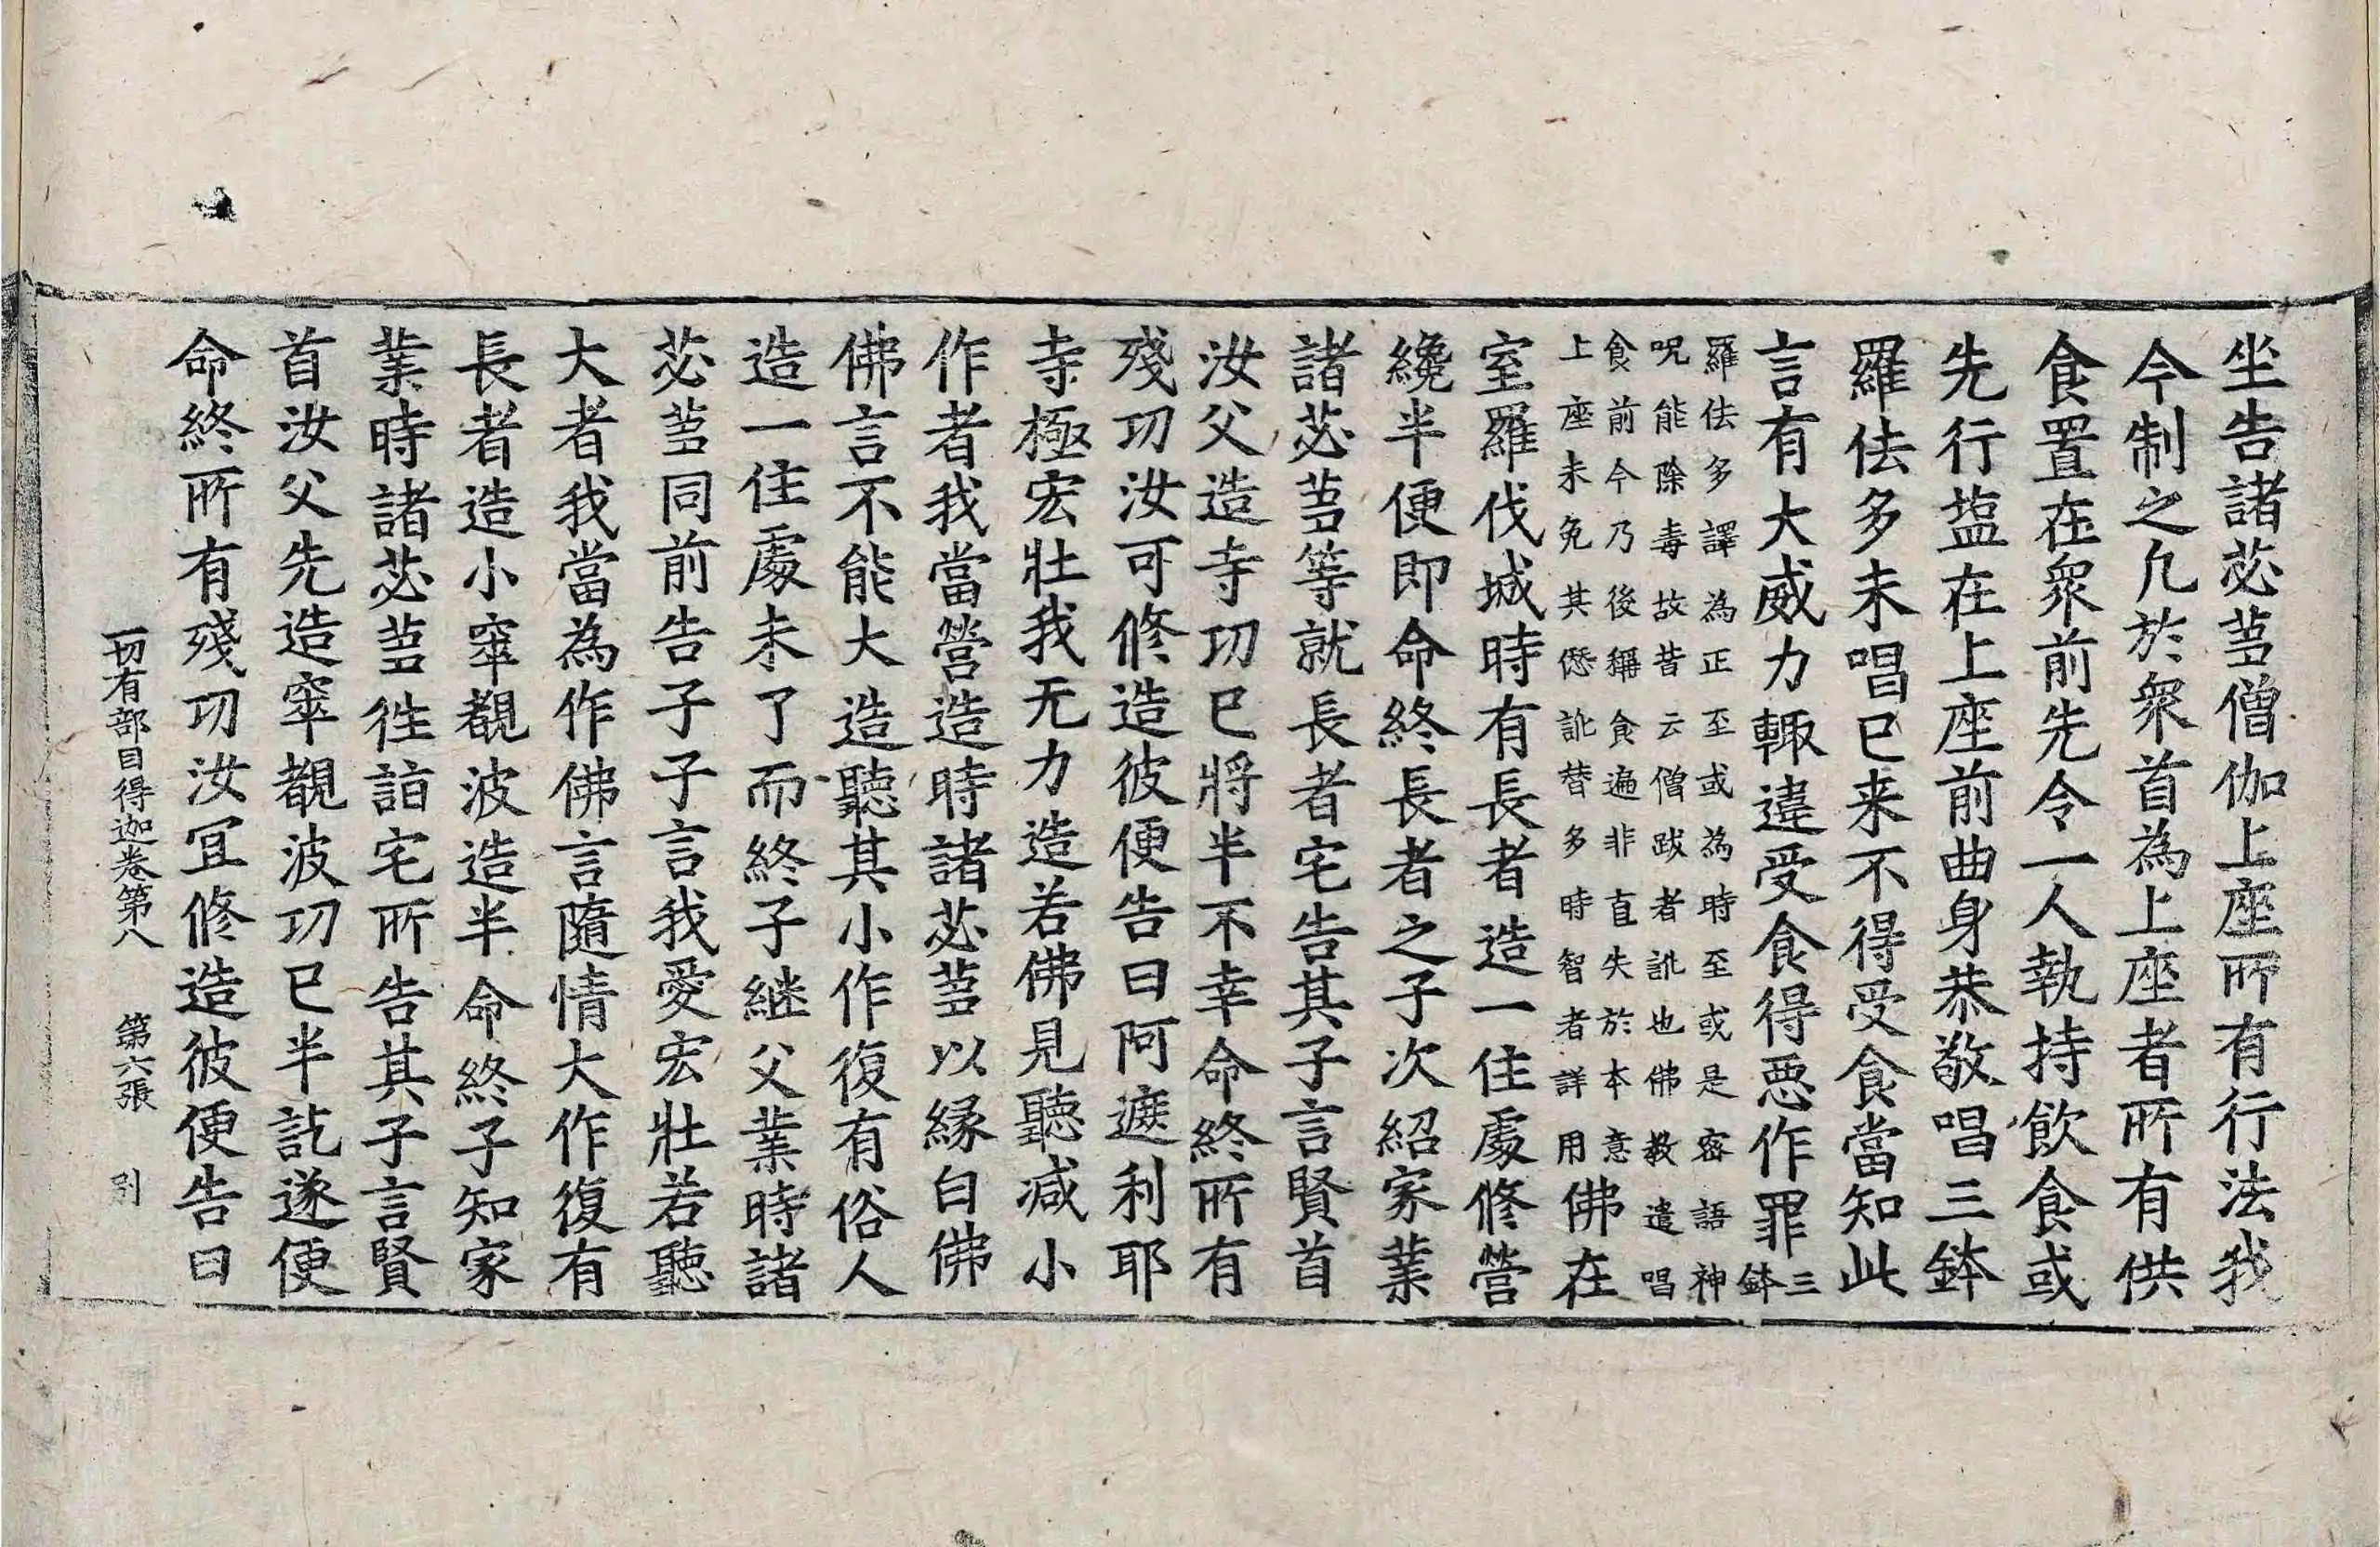 坐告諸苾蒭僧伽上座所有行法我
今制之凡於衆首為上座者所有供
食置在衆前先令一人執持飲食或
先行塩在上座前曲身恭敬唱三鉢
羅佉多未唱已来不得受食當知此
言有大威力輙違受食得惡作罪三鉢
羅佉多譯為正至或為時至或是密語神
呪能除毒故昔云僧跋者訛也佛教遣唱
食前今乃後稱食遍非直失於本意
上座未免其𠎝訛替多時智者詳用佛在
室羅伐城時有長者造一住處修營
纔半便即命終長者之子次紹家業
諸苾蒭等就長者宅告其子言賢首
汝父造寺功已將半不幸命終所有
殘功汝可修造彼便告曰阿遮利耶
寺極宏壮我无力造若佛見聽减小
作者我當營造時諸苾蒭以縁白佛
佛言不能大造聽其小作復有俗人
造一住處未了而終子継父業時諸
苾蒭同前告子子言我愛宏壮若聽
大者我當為作佛言隨情大作復有
長者造小窣覩波造半命終子知家
業時諸苾蒭徃詣宅所告其子言賢
首汝父先造窣覩波功已半訖遂便
命終所有殘功汝冝修造彼便告曰
一切有部目得迦卷第八 第六張 引